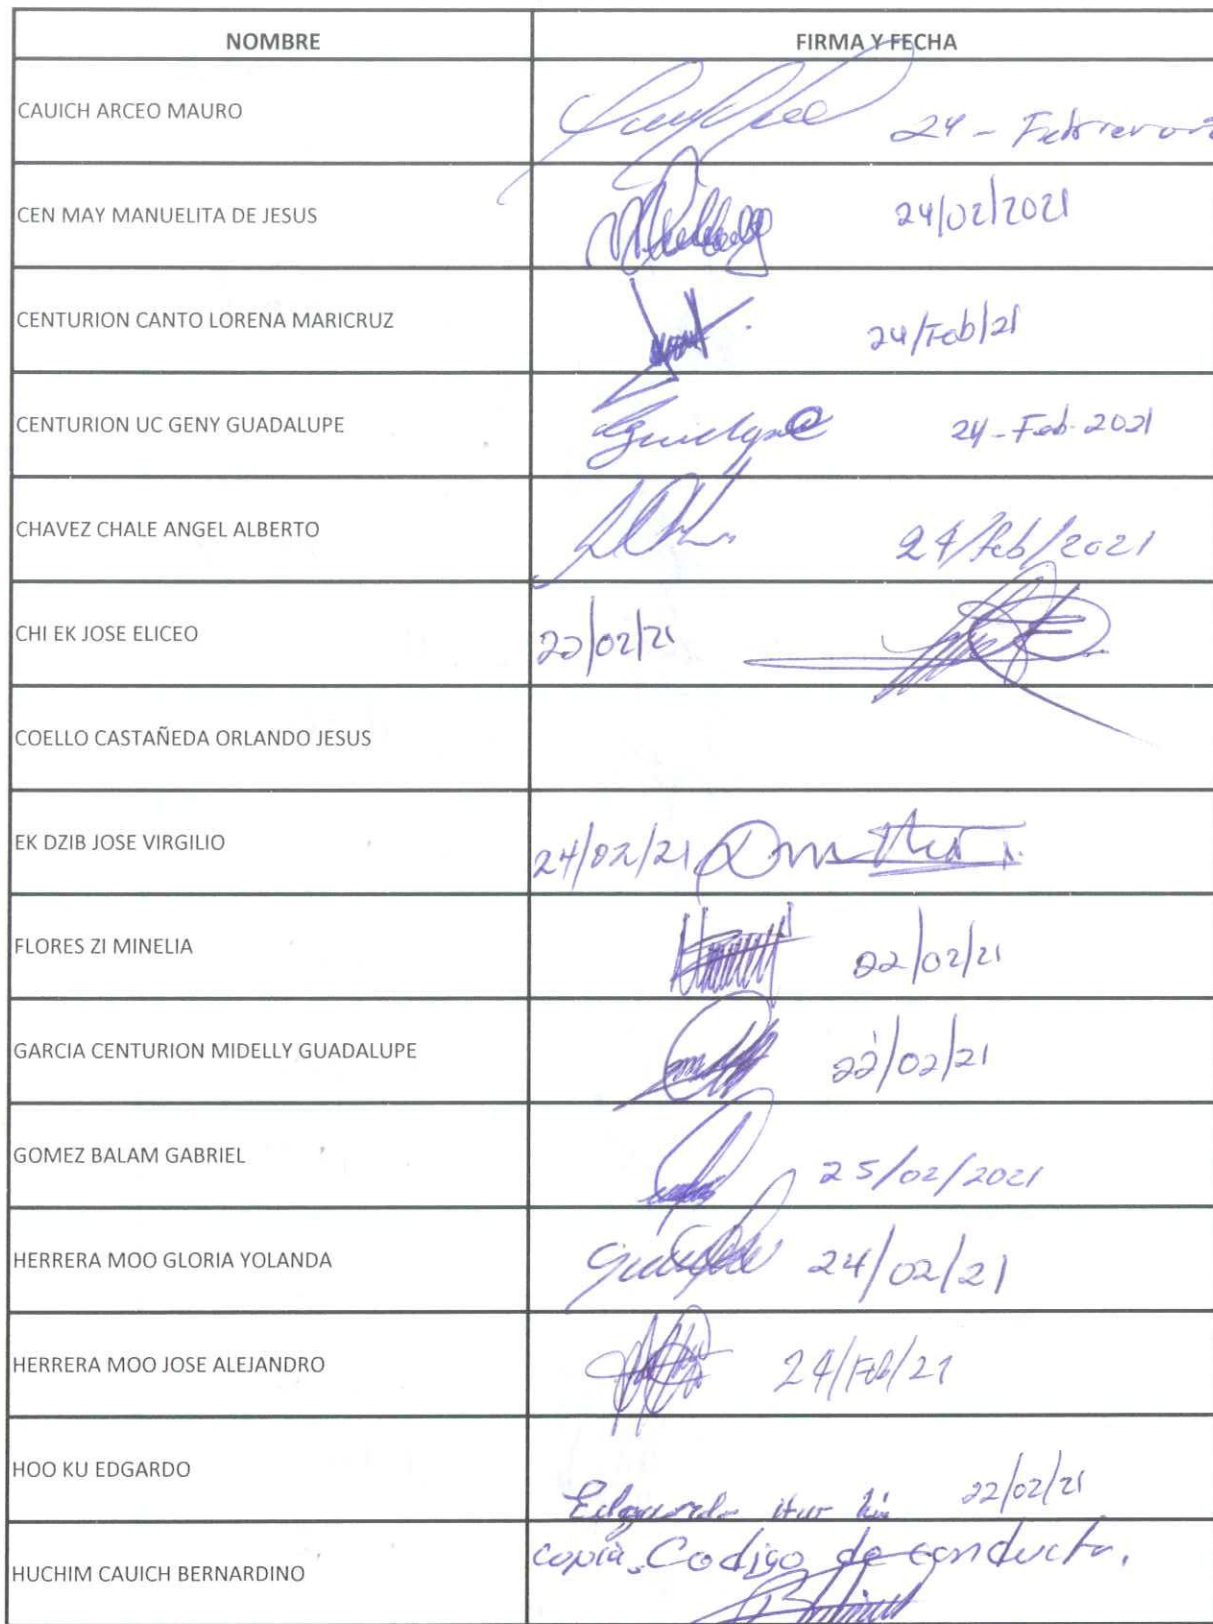 NOMBRE FIRMA Y FECHA
CAUICH ARCEO MAURO 24 - Febrero
CEN MAY MANUELITA DE JESUS 24/02/2021
CENTURION CANTO LORENA MARICRUZ 24/Feb/21
CENTURION UC GENY GUADALUPE 24-Feb-2021
CHAVEZ CHALE ANGEL ALBERTO 24/Feb/2021
CHI EK JOSE ELICEO 22/02/21
COELLO CASTAÑEDA ORLANDO JESUS
EK DZIB JOSE VIRGILIO 24/02/21
FLORES ZI MINELIA 22/02/21
GARCIA CENTURION MIDELLY GUADALUPE 22/02/21
GOMEZ BALAM GABRIEL 25/02/2021
HERRERA MOO GLORIA YOLANDA 24/02/21
HERRERA MOO JOSE ALEJANDRO 24/Feb/21
HOO KU EDGARDO 22/02/21
HUCHIM CAUICH BERNARDINO copia Codigo de conducta.